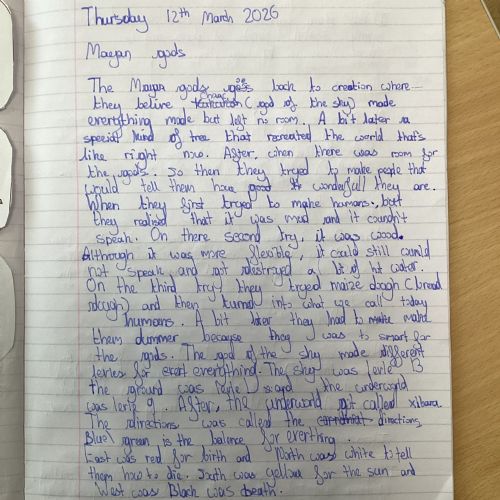 Thursday 12th March 2026
Mayan gods
The Mayan gods goes back to creation where
they belive (god of the sky) made
everything made but left no room. A bit later a
special kind of tree that recreated the world that's
like right now. After, when there was room for
the gods. So then they tryed to make people that
would tell them how good wonderful they are.
When they first tryed to make humans, but
they realised that it was mud and it coundn't
speak. On there second try, it was wood.
Although it was more flexible, it could still could
not speak and got destroyed a bit of hot water.
On the third try they tryed maize dough (bread
dough) and then turned into what we call today
humans. A bit later they had to make
them dummer because they was to smart for
the gods. The god of the sky made different
levles for everything. The sky was levle 13
the ground was levle the underworld
was levle 9. After, the underworld got called xibara.
The directions was called the directions,
Blue green is the balence for everthing.
East was red for birth and North was white to tell
them how to die. South was yellow for the sun and
West was Black was death.